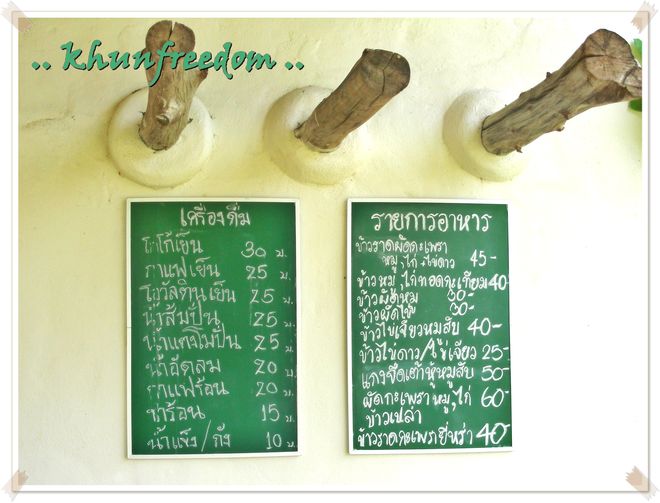 .. khunfreedom ..
เครื่องดื่ม
โกโก้เย็น 30 บ.
กาแฟเย็น 25 บ.
โอวัลตินเย็น 25 บ.
น้ำส้มปั่น 25 บ.
น้ำแตงโมปั่น 25 บ.
น้ำอัดลม 20 บ.
กาแฟร้อน 20 บ.
ชาร้อน 15 บ.
น้ำแข็ง/ถัง 10 บ.
รายการอาหาร
ข้าวราดผัดกะเพรา
หมู,ไก่+ไข่ดาว 45-
ข้าวหมู,ไก่ทอดกะเทียม 40-
ข้าวผัดหมู 30-
ข้าวผัดไข่ 30-
ข้าวไข่เจียวหมูสับ 40-
ข้าวไข่ดาว/ไข่เจียว 25-
แกงจืดเต้าหู้หมูสับ 50-
ผัดกะเพราหมู,ไก่ 60-
ข้าวเหล่า
ข้าวราดกะเพรายี่หร่า 40-